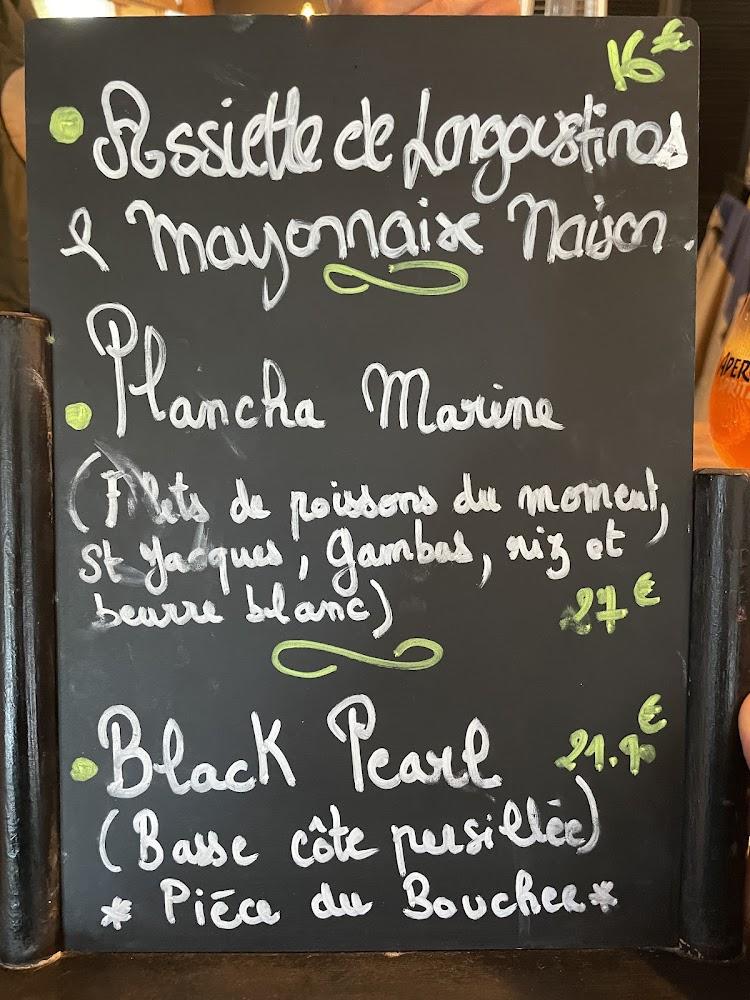 16€
Assiette de Langoustines
& Mayonnaise Maison.
Plancha Marine
(Filets de poissons du moment,
St Jacques, Gambas, riz et
beurre blanc)
27€
Black Pearl
21.90€
(Basse côte persillée)
* Pièce du Boucher *
APER